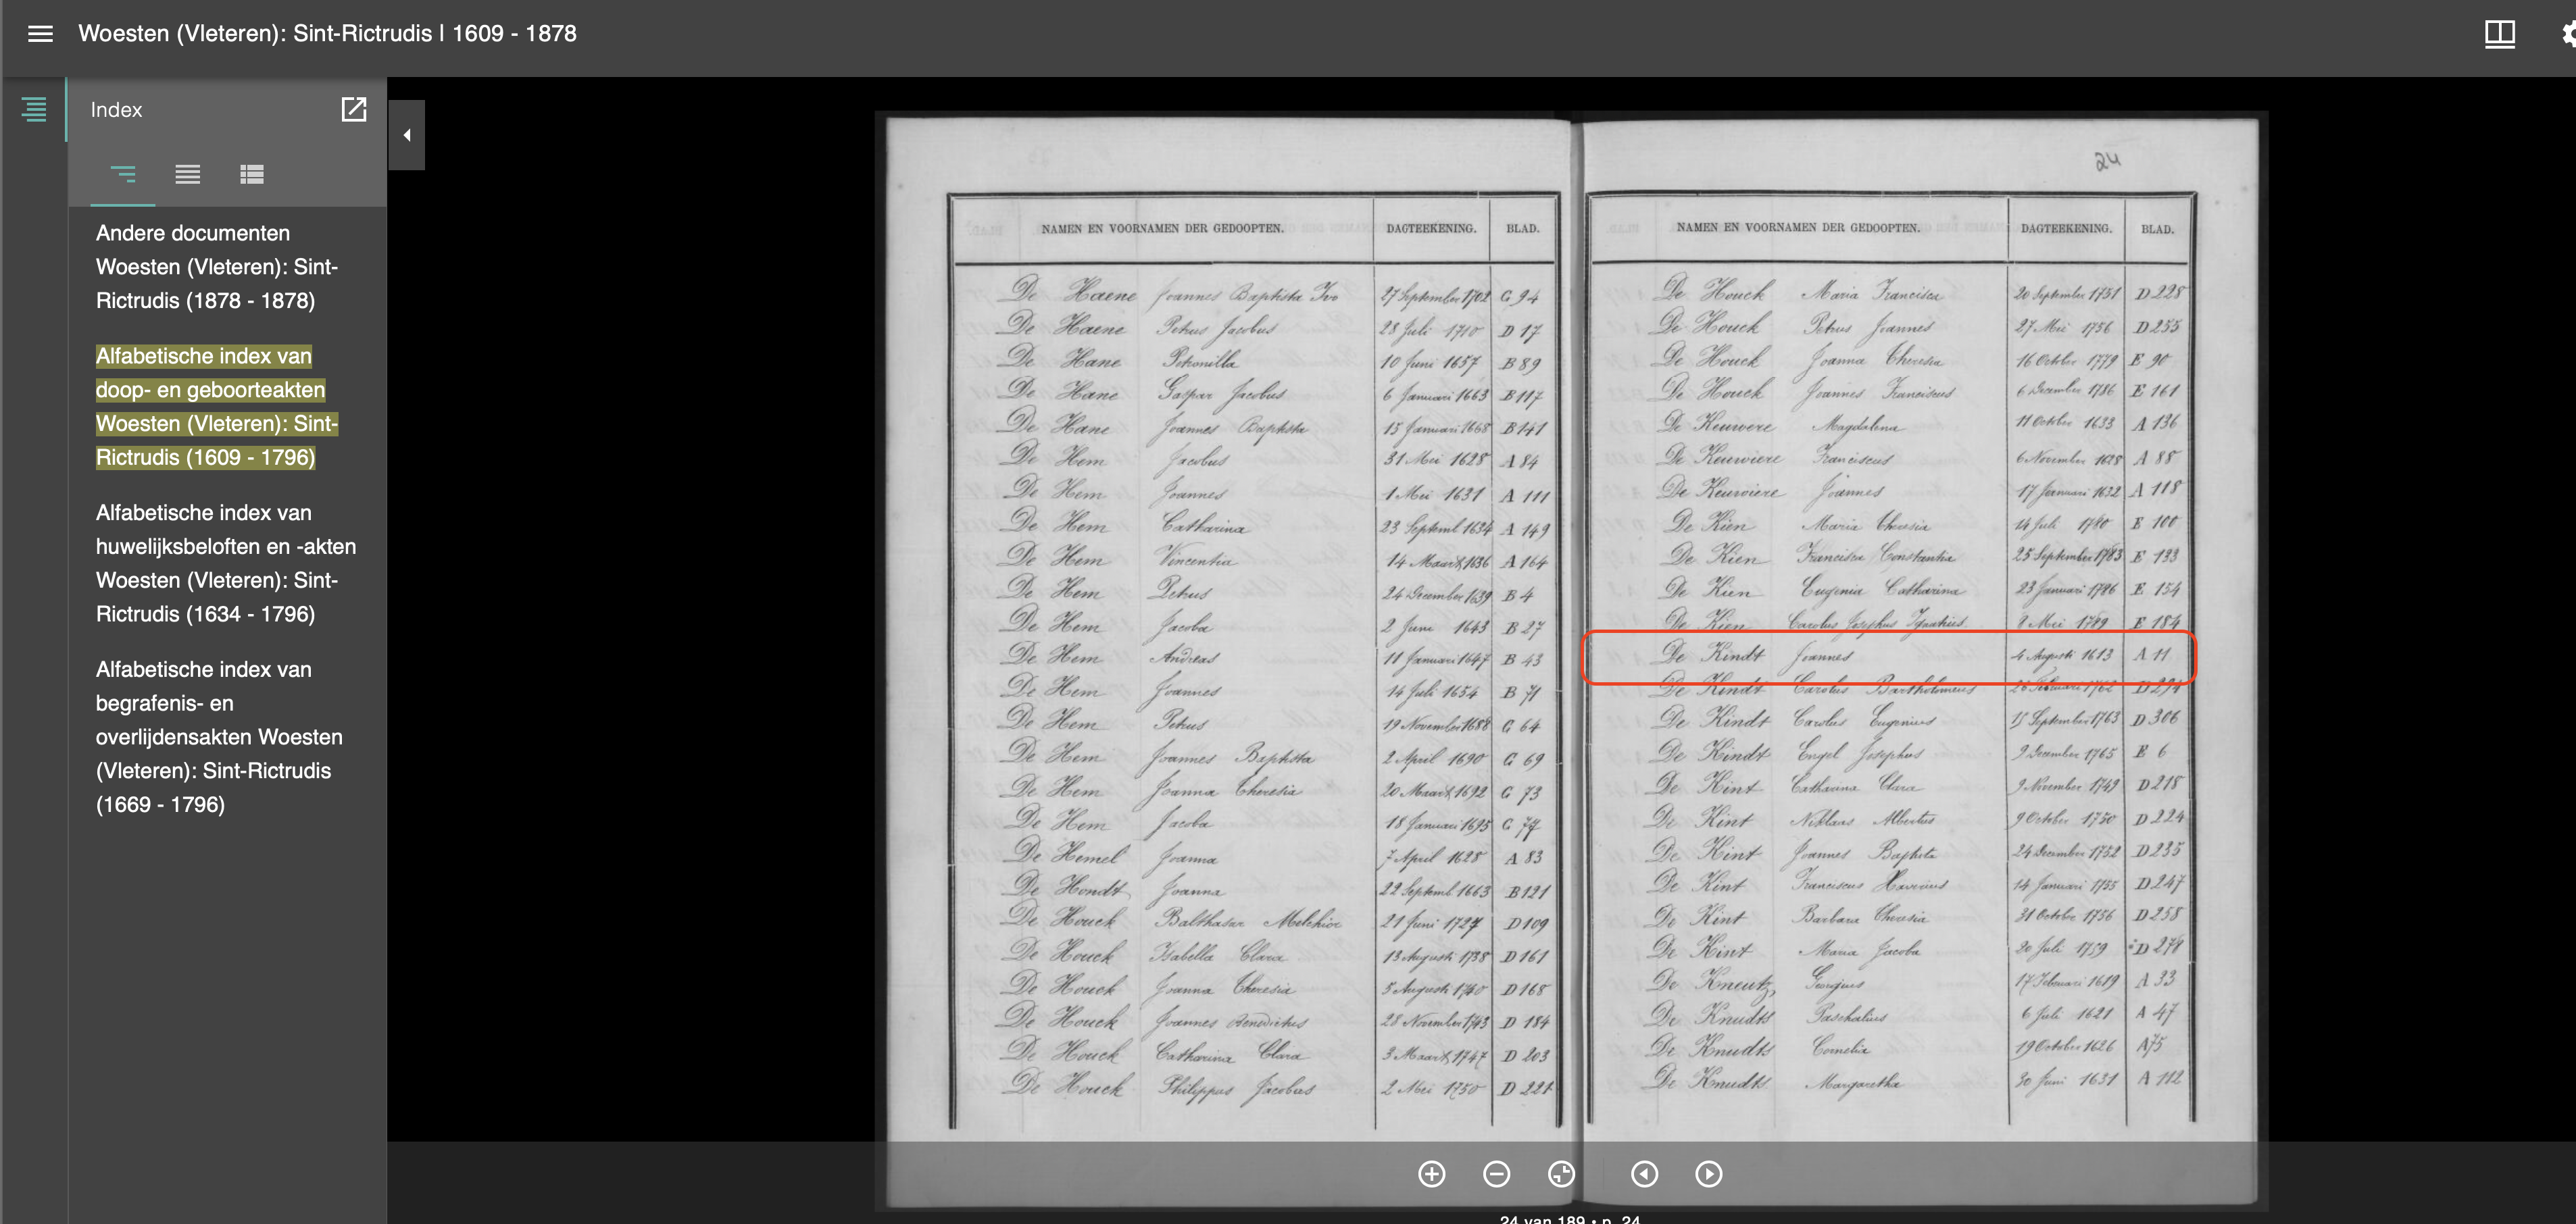 Woesten (Vleteren): Sint-Rictrudis | 1609 - 1878
Index
Andere documenten
Woesten (Vleteren): Sint-
Rictrudis (1878 - 1878)
Alfabetische index van
doop- en geboorteakten
Woesten (Vleteren): Sint-
Rictrudis (1609 - 1796)
Alfabetische index van
huwelijksbeloften en -akten
Woesten (Vleteren): Sint-
Rictrudis (1634 - 1796)
Alfabetische index van
begrafenis- en
overlijdensakten Woesten
(Vleteren): Sint-Rictrudis
(1669 - 1796)
NAMEN EN VOORNAMEN DER GEDOOPTEN. DAGTEEKENING. BLAD.
De Haene Joannes Baptista Ivo 27 September 1702 C 94
De Haene Petrus Jacobus 28 Juli 1710 D 17
De Hane Petronilla 10 Juni 1657 B 89
De Hane Gaspar Jacobus 6 Januari 1663 B 117
De Hane Joannes Baptista 15 Januari 1668 B 141
De Hem Jacobus 31 Mei 1628 A 84
De Hem Joannes 1 Mei 1631 A 111
De Hem Catharina 23 Septemb. 1634 A 149
De Hem Vincentia 14 Maart 1636 A 164
De Hem Petrus 24 December 1639 B 4
De Hem Jacoba 2 Juni 1643 B 27
De Hem Andreas 11 Januari 1647 B 43
De Hem Joannes 14 Juli 1654 B 71
De Hem Petrus 19 November 1688 C 64
De Hem Joannes Baptista 2 April 1690 C 69
De Hem Joanna Theresia 20 Maart 1692 C 73
De Hem Jacoba 18 Januari 1695 C 77
De Hemel Joanna 7 April 1628 A 83
De Hondt Joanna 22 Septemb. 1663 B 121
De Houck Balthasar Melchior 21 Juni 1727 D 109
De Houck Isabella Clara 13 Augusti 1738 D 161
De Houck Joanna Theresia 5 Augusti 1740 D 168
De Houck Joannes Benedictus 28 November 1743 D 184
De Houck Catharina Clara 3 Maart 1747 D 203
De Houck Philippus Jacobus 2 Mei 1750 D 221
24
NAMEN EN VOORNAMEN DER GEDOOPTEN. DAGTEEKENING. BLAD.
De Houck Maria Francisca 20 September 1751 D 228
De Houck Petrus Joannes 27 Mei 1756 D 255
De Houck Joanna Theresia 16 October 1779 E 90
De Houck Joannes Franciscus 6 December 1786 E 161
De Keuwere Magdalena 11 October 1633 A 136
De Keuwiere Franciscus 6 November 1628 A 88
De Keuwiere Joannes 17 Januari 1632 A 118
De Kien Maria Theresia 14 Juli 1780 E 100
De Kien Francisca Constantia 25 September 1783 E 133
De Kien Eugenia Catharina 23 Januari 1786 E 154
De Kien Carolus Josephus Ignatius 8 Mei 1789 E 184
De Kindt Joannes 4 Augusti 1613 A 11
De Kindt Carolus Bartholomeus 26 Februari 1762 D 294
De Kindt Carolus Eugenius 15 September 1763 D 306
De Kindt Engel Josephus 9 December 1765 E 6
De Kint Catharina Clara 9 November 1749 D 218
De Kint Niklaus Albertus 9 October 1750 D 224
De Kint Joannes Baptista 24 December 1752 D 235
De Kint Franciscus Xaverius 14 Januari 1755 D 247
De Kint Barbara Theresia 31 October 1756 D 258
De Kint Maria Jacoba 20 Juli 1759 D 278
De Kneutz, Georgius 17 Februari 1619 A 33
De Knudts Paschalius 6 Juli 1621 A 47
De Knudts Cornelia 19 October 1626 A 75
De Knudts Margaretha 30 Juni 1631 A 112
24 van 189 • p. 24